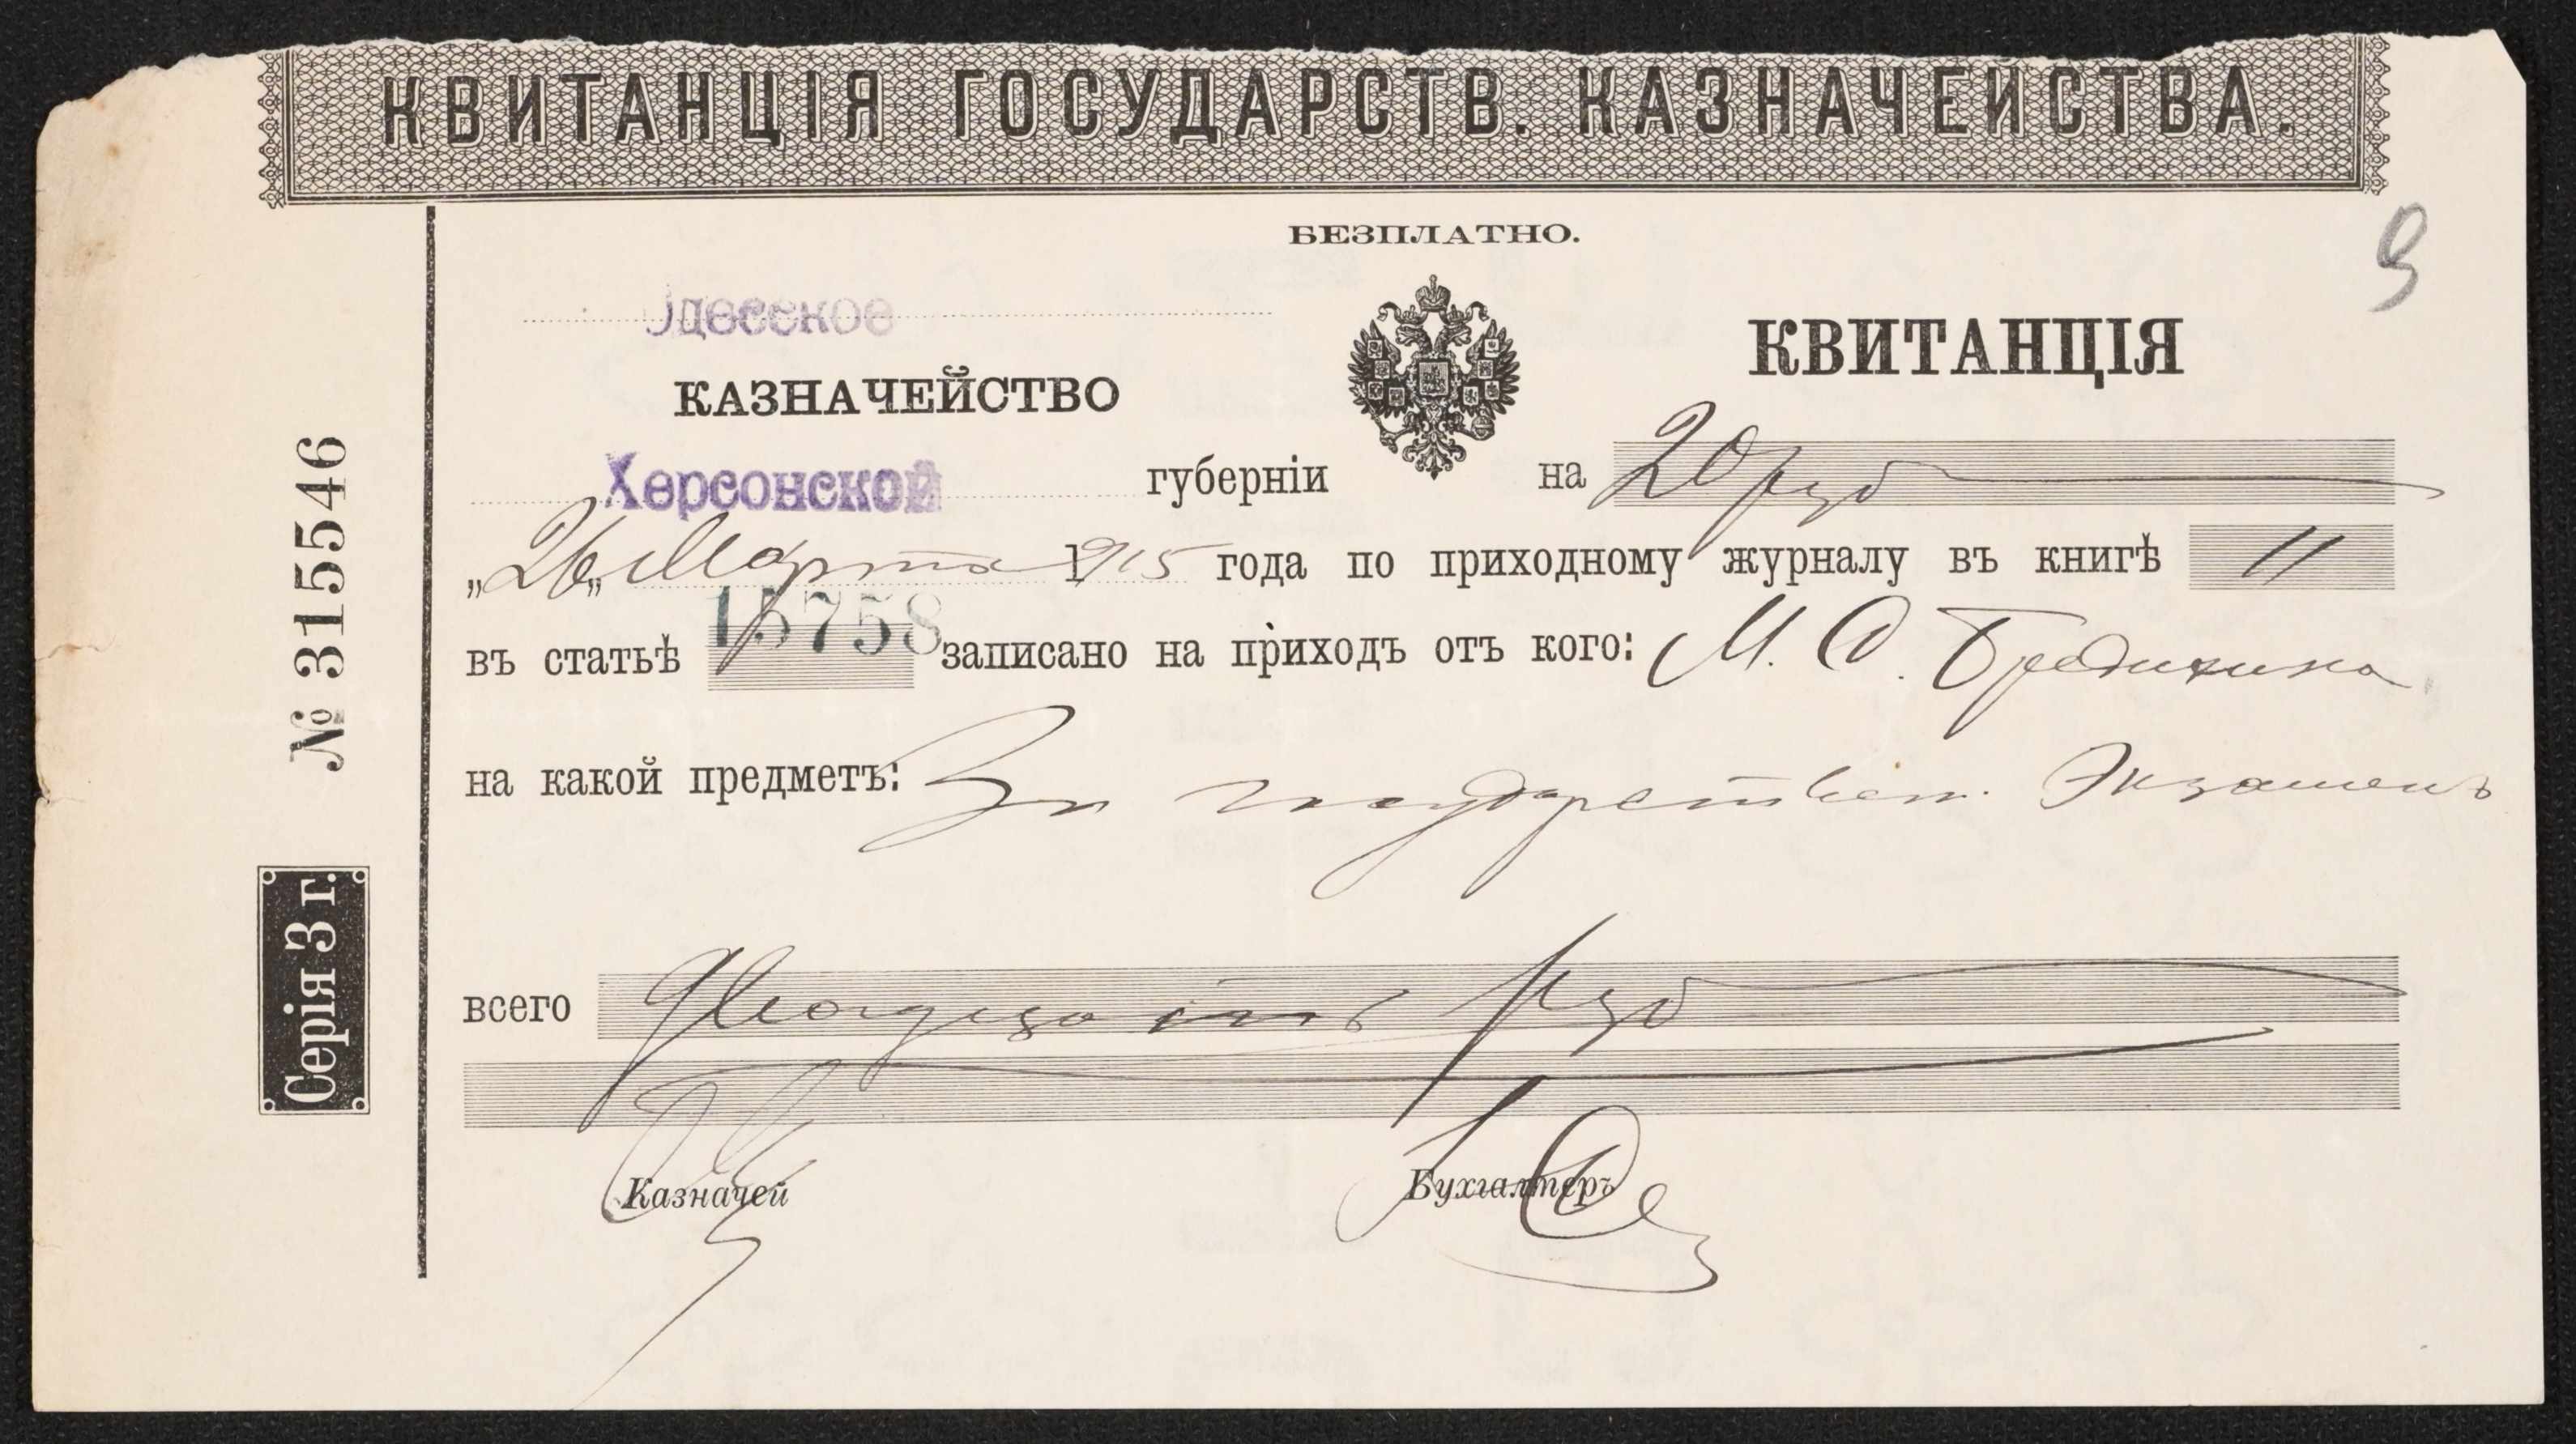 КВИТАНЦІЯ ГОСУДАРСТВ. КАЗНАЧЕЙСТВА.
БЕЗПЛАТНО.
9
Одесское
КАЗНАЧЕЙСТВО
КВИТАНЦІЯ
Херсонской губерніи
на 20 руб
„26„ Марта 1915 года по приходному журналу въ книгѣ 11
въ статьѣ 15758 записано на приходъ отъ кого: М. О.
на какой предметъ: За государствен. Экзаменъ
всего Двадцать руб
Казначей
Бухгалтеръ
№ 315546
Серія 3 г.